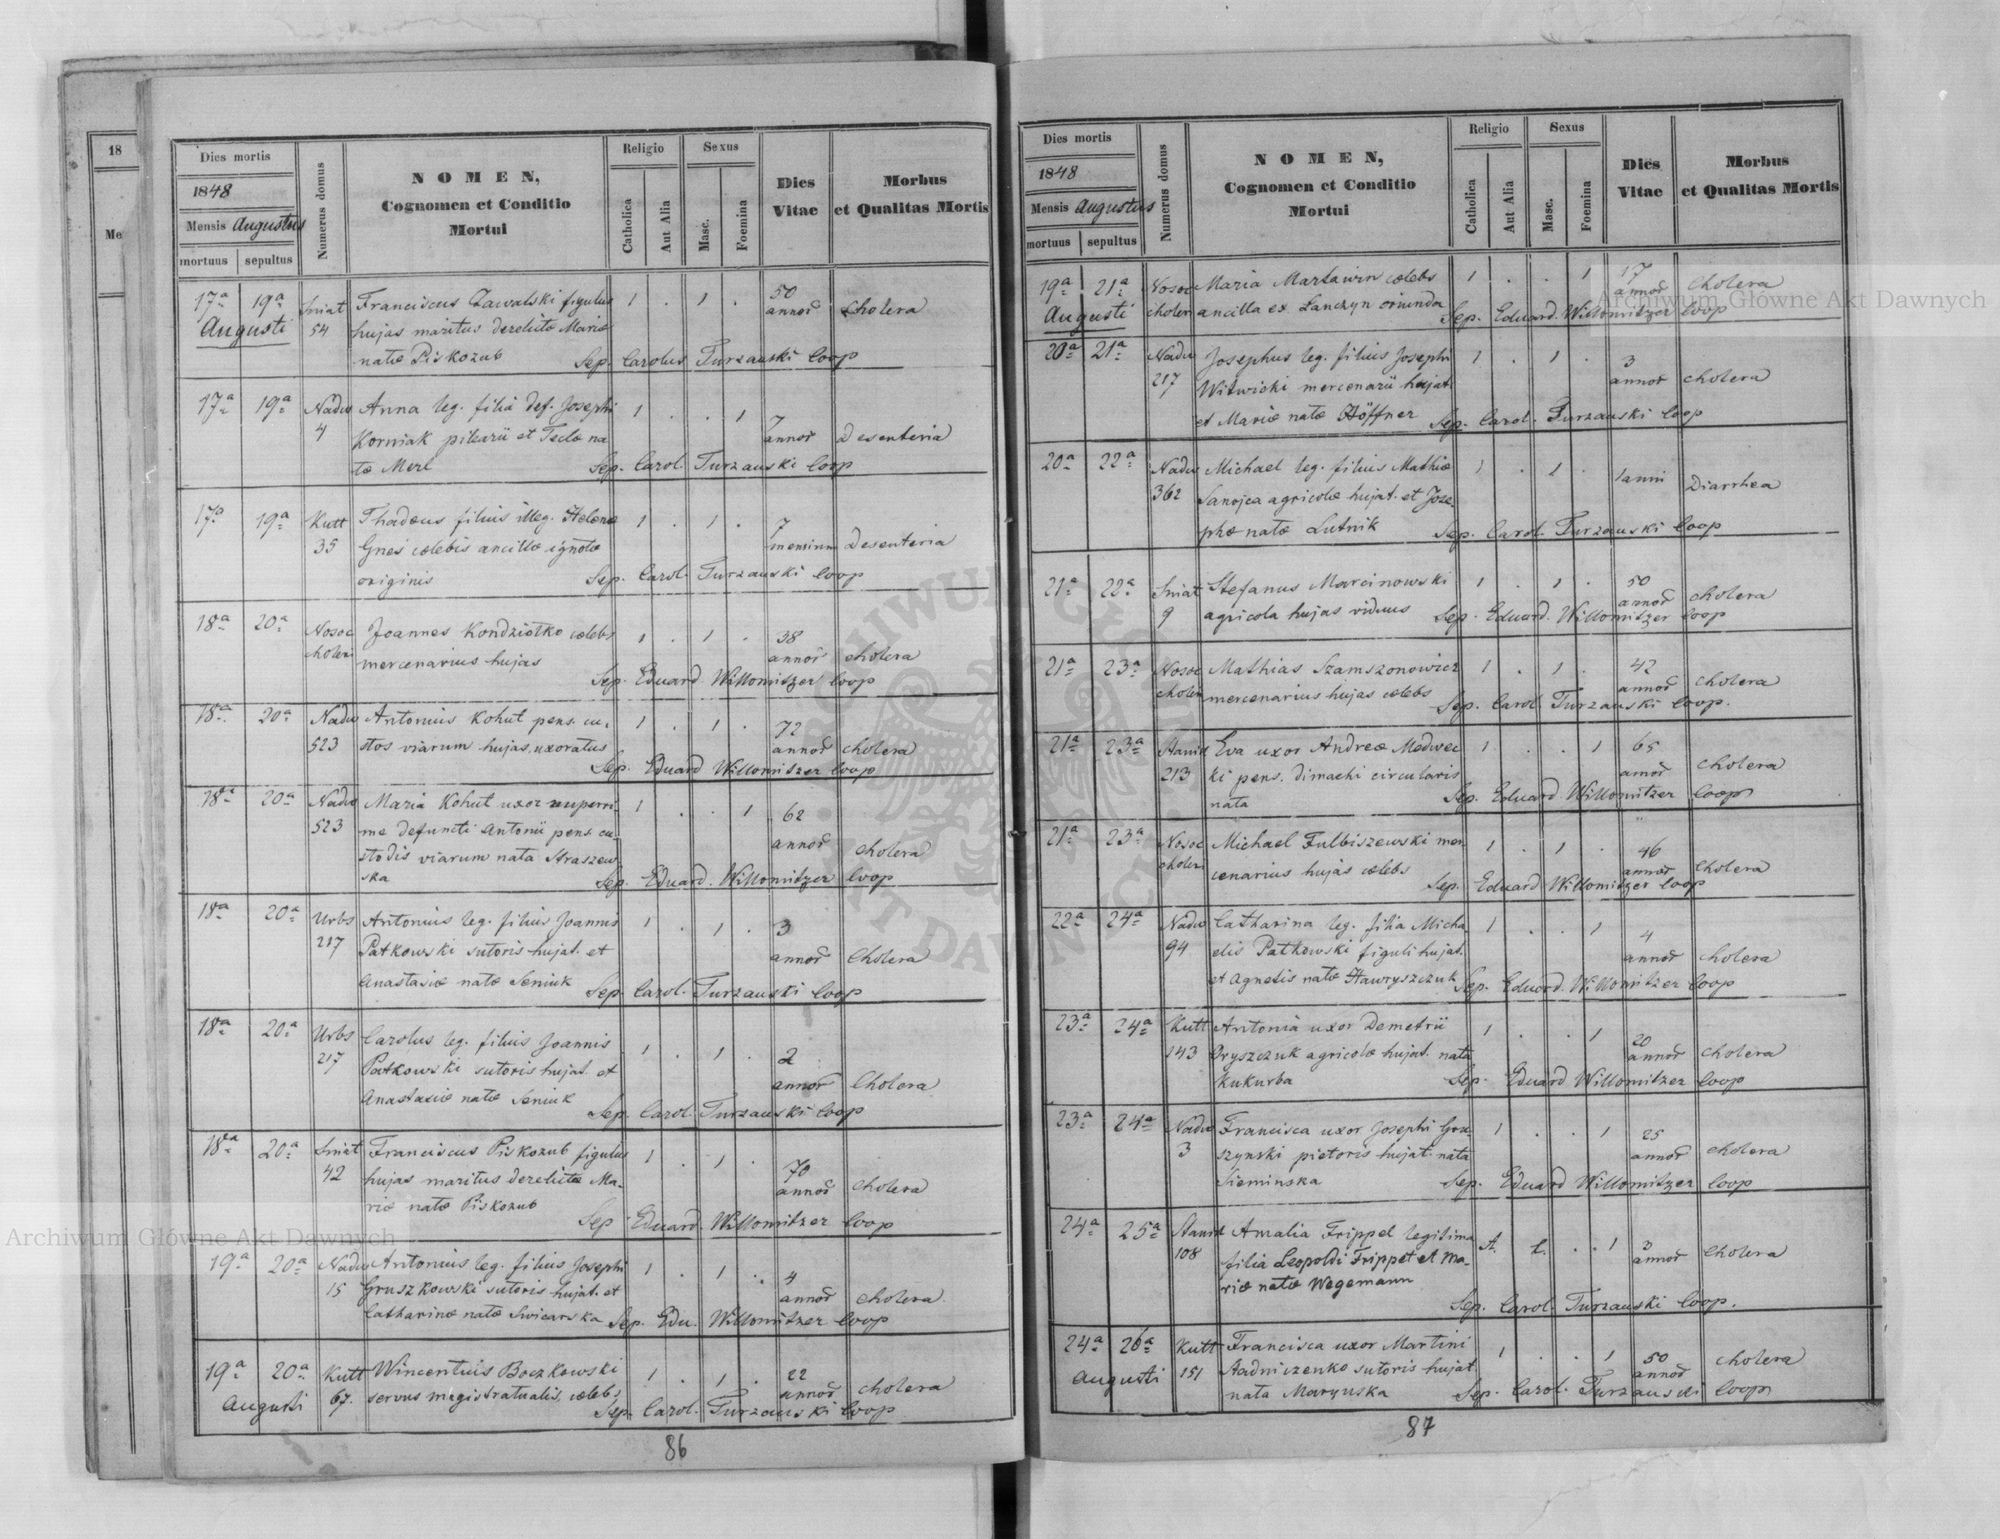 18
Me
Dies mortis
1848
Mensis Augustus
mortuus sepultus
Numerus domus
NOMEN,
Cognomen et Conditio
Mortui
Religio
Catholica
Aut Alia
Sexus
Masc.
Foemina
Dies
Vitae
Morbus
et Qualitas Mortis
17a 19a Sniat Franciscus Zawalski figulus 1 . 1 . 50
Augusti 54 hujas maritus derelictæ Mariæ annor Cholera
natæ Piskozub Sep. Carolus Turzanski Coop
17a 19a Nadw Anna leg. filia def. Josephi 1 . . 1 7
4 Korniak pilearii et Teclæ na annor Desenteria
tæ Merl Sep. Carol. Turzanski Coop
17a 19a Kutt Thadeus filius illeg. Helenæ 1 . 1 . 7
35 Gnes cælebis ancillæ ignotæ mensium Desenteria
originis Sep. Carol. Turzanski Coop
18a 20a Nosoc Joannes Kondziołko cælebs 1 . 1 . 38
choler mercenarius hujas annor cholera
Sep. Eduard Willomitzer Coop
18a 20a Nadw Antonius Kohut pens. cu, 1 . 1 . 72
523 stos viarum hujas, uxoratus annor cholera
Sep. Eduard Willomitzer Coop
18a 20a Nadw Maria Kohut uxor nuperri- 1 . . 1 62
523 me defuncti Antonii pens. cu- annor
stodis viarum nata Straszew cholera
ska Sep. Eduard. Willomitzer Coop
18a 20a Urbs Antonius leg. filius Joannis 1 . 1 . 3
217 Patkowski sutoris hujat. et annor Cholera
Anastasiæ natæ Seniuk Sep. Carol. Turzanski Coop
18a 20a Urbs Carolus leg. filius Joannis 1 . 1 . 2
217 Patkowski sutoris hujat. et annor Cholera
Anastasiæ natæ Seniuk Sep. Carol. Turzanski Coop
18a 20a Sniat Franciscus Piskozub figulus 1 . 1 . 70
42 hujas maritus derelictæ Ma- annor cholera
riæ natæ Piskozub Sep. Eduard. Willomitzer Coop
19a 20a Nadw Antonius leg. filius Josephi 1 . 1 . 4
15 Gruszkowski sutoris hujat. et annor cholera
Catharinæ natæ Swicarska Sep. Edu. Willomitzer Coop
19a 20a Kutt Wincentius Boczkowski 1 . 1 . 22
Augusti 67. servus magistratualis, cælebs annor cholera
Sep. Carol. Turzanski Coop
86
Dies mortis
1848
Mensis Augustus
mortuus sepultus
Numerus domus
NOMEN,
Cognomen et Conditio
Mortui
Religio
Catholica
Aut Alia
Sexus
Masc.
Foemina
Dies
Vitae
Morbus
et Qualitas Mortis
19a 21a Nosoc Maria Martawin cælebs 1 . . 1 17 Cholera
Augusti choler ancilla ex Lanczyn oriunda annor
Sep. Eduard. Willomitzer Coop
20a 21a Nadw Josephus leg. filius Josephi 1 . 1 . 3
217 Witwicki mercenarii hujat. annor cholera
et Mariæ natæ Höffner Sep. Carol. Turzanski Coop
20a 22a Nadw Michael leg. filius Mathiæ 1 . 1 . 1 anni Diarrhea
362 Sanojca agricolæ hujat. et Jose
phæ natæ Lutnik Sep. Carol. Turzanski Coop
21a 22a Sniat Stefanus Marcinowski 1 . 1 . 50
9 agricola hujas viduus annor cholera
Sep. Eduard. Willomitzer Coop
21a 23a Nosoc Mathias Szamszonowicz 1 . 1 . 42
choler mercenarius hujas cælebs annor cholera
Sep. Carol. Turzanski Coop.
21a 23a Stanisl Eva uxor Andreæ Medwec 1 . . 1 65
213 ki pens. dimachi circularis annor cholera
nata Sep. Eduard Willomitzer Coop
21a 23a Nosoc Michael Fulbiszewski mer 1 . 1 . 46
choler cenarius hujas cælebs annor Cholera
Sep. Eduard Willomitzer Coop
22a 24a Nadw Catharina leg. filia Micha 1 . . 1 4
94 elis Patkowski figuli hujat. annor cholera
et Agnetis natæ Hawryszczuk Sep. Eduard Willomitzer Coop
23a 24a Kutt Antonia uxor Demetrii 1 . . 1 20
143 Dryszczuk agricolæ hujat. nata annor cholera
Kukurba Sep. Eduard Willomitzer Coop
23a 24a Nadw Francisca uxor Josephi Gru- 1 . . 1 25
3 szynski pictoris hujat. nata annor cholera
Sieminska Sep. Eduard Willomitzer Coop
24a 25a Stanisl Amalia Frippel legitima A. C. . 1 3
108 filia Leopoldi Frippel et Ma- annor cholera
riæ natæ Wegemann
Sep. Carol. Turzanski Coop.
24a 26a Kutt Francisca uxor Martini 1 . . 1 50 cholera
Augusti 151 Hadniczenko sutoris hujat. annor
nata Marynska Sep. Carol. Turzanski Coop
87
Archiwum Główne Akt Dawnych
Archiwum Główne Akt Dawnych
ARCHIWUM GŁÓWNE AKT DAWNYCH